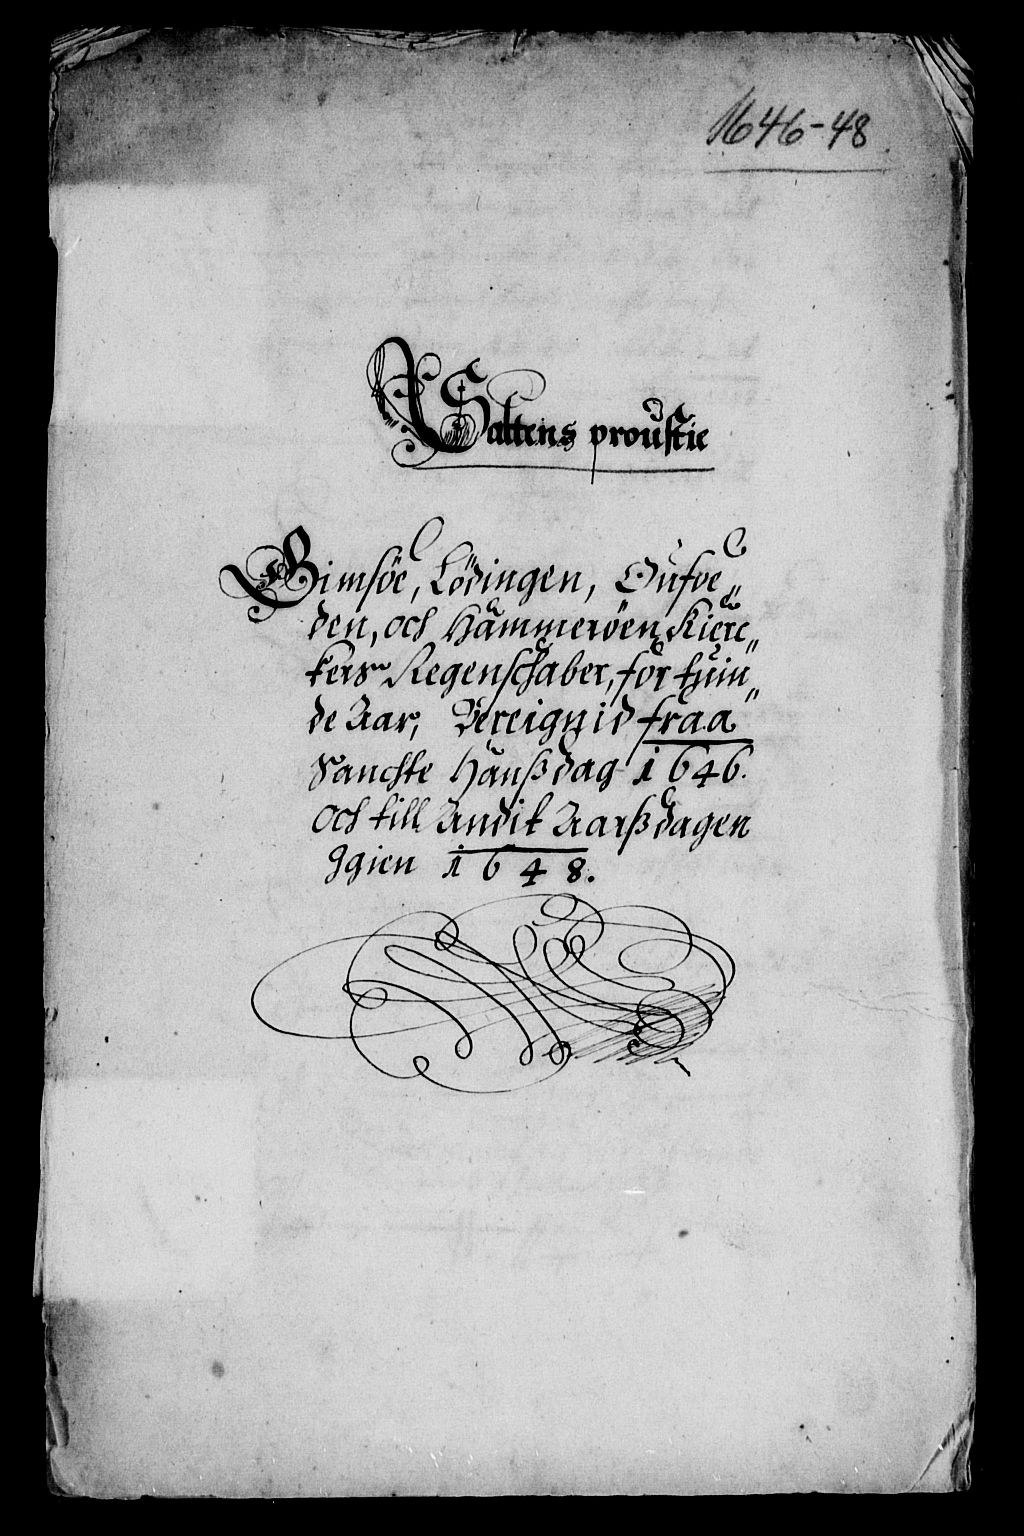 1646-48
Saltens proustie
Gimsöe, Lödingen, Oufoe„
den, och Hammeröen Kierc„
kers Regenschaber, for tuin„
de Aar, Bereignid fraa
Sanckte Hanßdag 1646.
och till Andit Aarßdagen
Igien 1648.